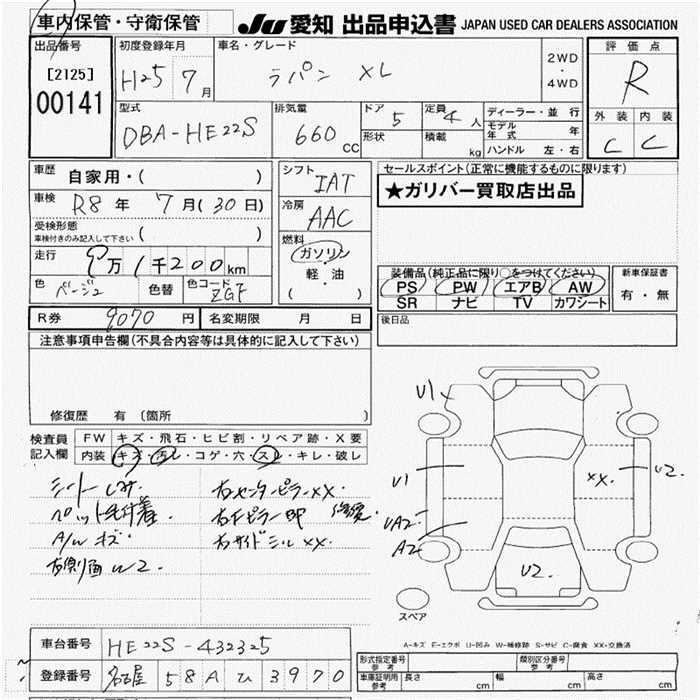 車内保管・守衛保管
JU 愛知 出品申込書 JAPAN USED CAR DEALERS ASSOCIATION
出品番号 初度登録年月 車名・グレード 評価点
[2125] H25 7月 ラパン XL 2WD・4WD R
00141
型式 排気量 ドア 定員 ディーラー・並行 外装 内装
DBA-HE22S 660cc 5 4人 モデル年式 年 C C
形状 積載 kg ハンドル 左・右
車歴 自家用・( )
シフト IAT
セールスポイント(正常に機能するものに限ります)
車検 R8年 7月(30日)
★ガリバー買取店出品
冷房 AAC
受検形態
車検付きのみ記入して下さい ( )
燃料 ガソリン・軽・油 ( )
走行 9万1千200km
装備品(純正品に限り○をつけてください) 新車保証書
PS PW エアB AW 有・無
SR ナビ TV カワシート
色 ベージュ 色替 色コード ZGF
R券 9070円 名変期限 月 日
後日品
注意事項申告欄(不具合内容等は具体的に記入して下さい)
修復歴 有 (箇所 )
検査員記入欄 FW キズ・飛石・ヒビ割・リペア跡・X要
内装 キズ・汚レ・コゲ・穴・スレ・キレ・破レ
シートしみ 右センターピラーXX.
ペット毛付着 右Fピラー 修復
A/W キズ 右サイドシルXX.
右側面W2.
U1
U1
UA2
A2
XX.
U2.
U2.
スペア
A-キズ E-エクボ U-凹み W-補修跡 S-サビ C-腐食 XX-交換済
車台番号 HE22S-432325
形式指定番号 参考 類別区分番号 参考
登録番号 名古屋 58A ひ 3970
車庫証明用 参考 長さ cm 幅 cm 高さ cm